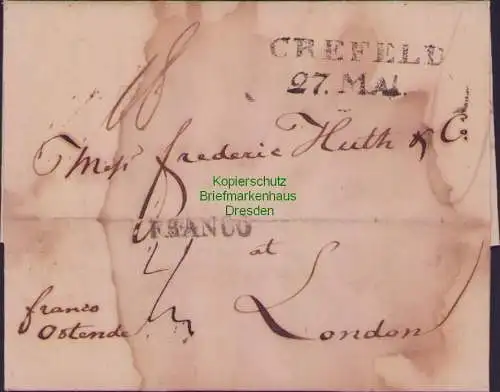 CREFELD
27. MAI.
Mess Frederic Huth & Co.
Kopierschutz
Briefmarkenhaus
Dresden
FRANCO
at
franco
Ostende
London